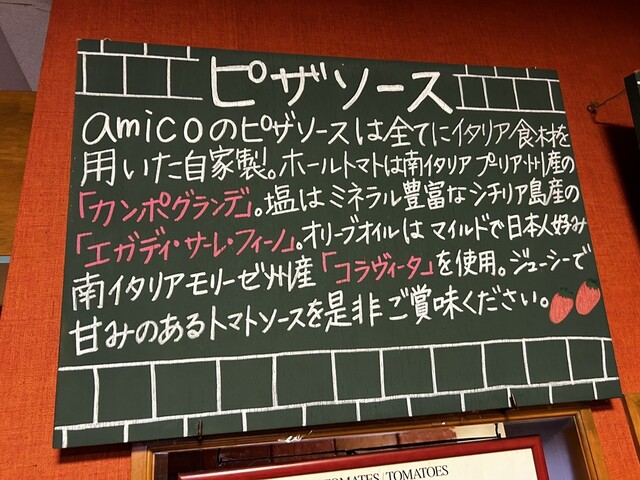 ピザソース
amicoのピザソースは全てにイタリア食材を
用いた自家製。ホールトマトは南イタリアプーリア州産の
「カンポグランデ」。塩はミネラル豊富なシチリア島産の
「エガディ・サーレ・フィーノ」。オリーブオイルはマイルドで日本人好み
南イタリアモリーゼ州産「コラヴィータ」を使用。ジューシーで
甘みのあるトマトソースを是非ご賞味ください。
TOMATES / TOMATOES